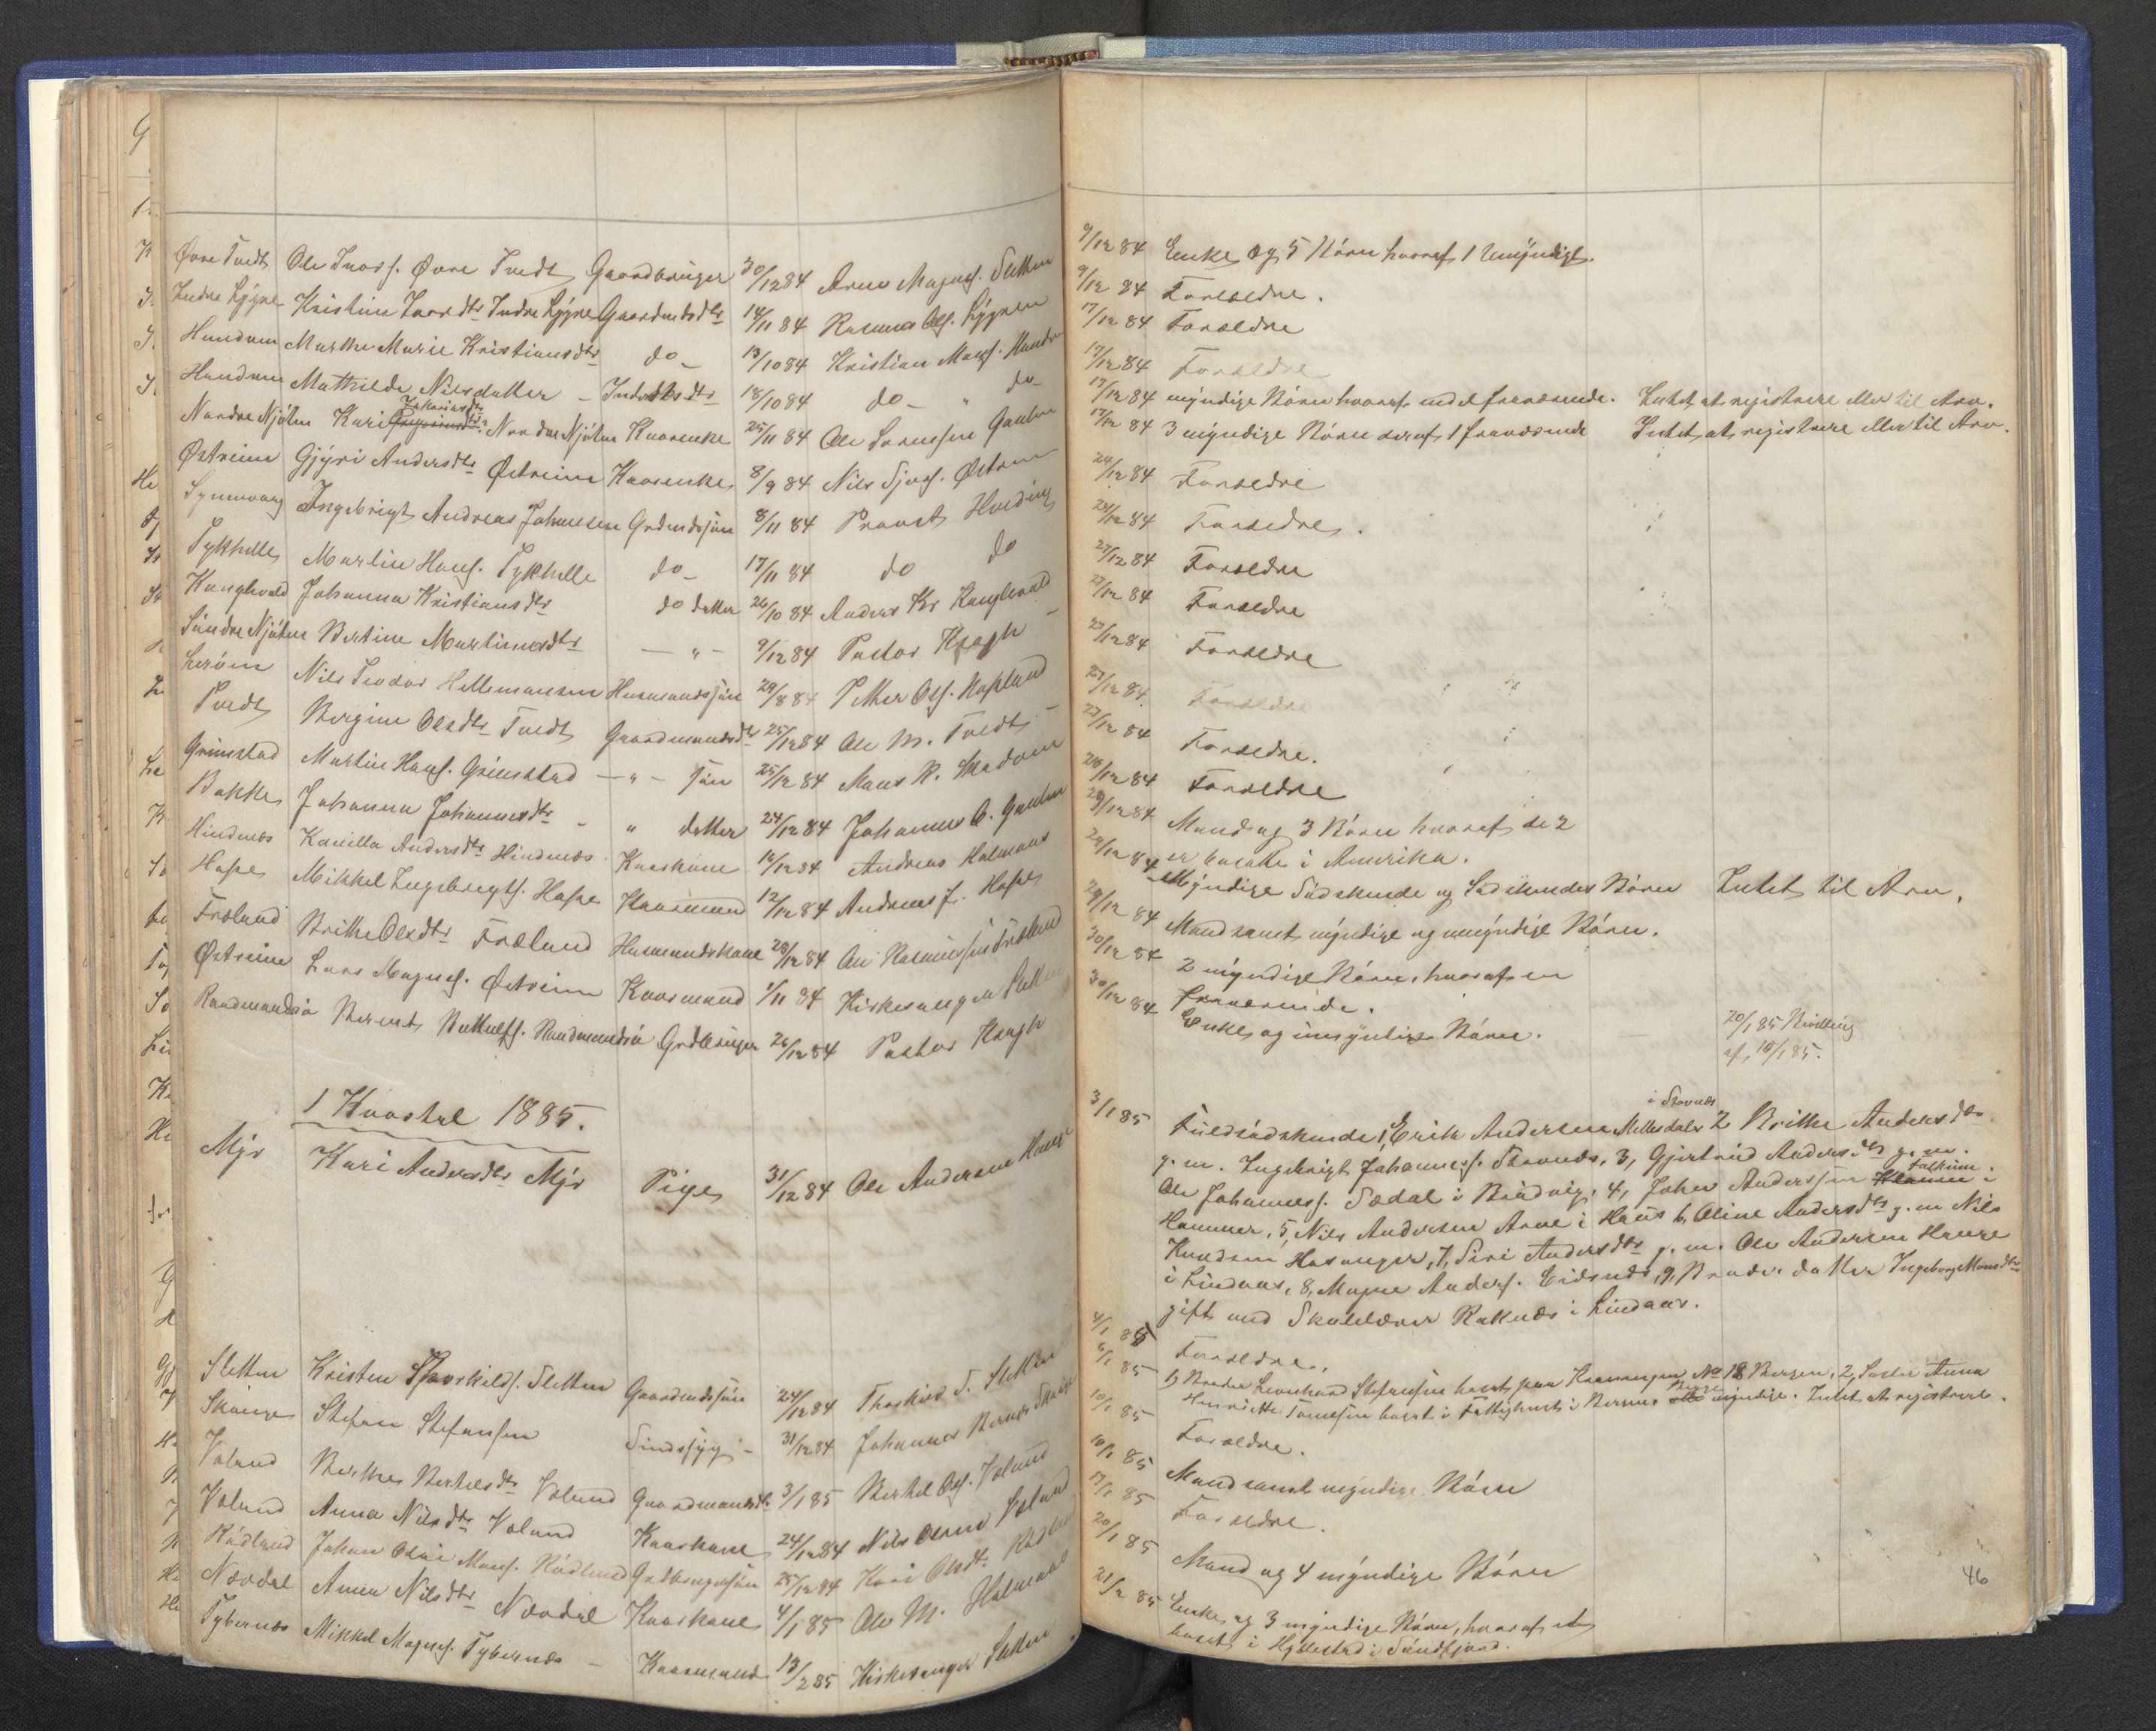 Øvre Tvedt Ole Ivars. Øvre Tvedt Gaardbruger 30/12 84 Arne Magnes. Sletten
Indre Lygre Kristine Larsdtr Indre Lygre Gaardmdsdtr 14/11 84 Rasmus Ols. Lygren
Hundven Marthe Marie Kristiansdtr do 13/10 84 Kristian Mons. Hundv
Hundven Mathilde Nilsdatter Inderstsdtr 18/10 84 do " do
Nordre Njøten Kari Zakariasdtr Nordre Njøten Kaarenke 25/11 84 Ole Larsussen
Østreim Gjyri Andersdtr Østreim Kaarenke 8/9 84 Nils Sjurs. Østrem
Synnevaag Ingebrigt Andreas Johannesen Grdmdssøn 8/11 84 Provst Hvoding
Tykhelle Martin Hans. Tykhelle do 17/11 84 do do
Kanglevold Johanna Kristiansdtr do datter 26/10 84 Anders Kr Kanglevold
Søndre Njøten Bertine Martinusdtr " 9/12 84 Pastor Krogh
Lerøen Nils Teodor Hellemansen Husmandssøn 29/8 84 Petter Ols.
Tvedt Bergine Olsdtr Tvedt Gaardmandsdtr 25/12 84 Ole M. Tvedt
Grimstad Martin Hans. Grimstad " søn 25/12 84 Mons R.
Bakke Johanna Johannesdtr " datter 24/12 84 Johannes O.
Hindenæs Kanilla Andersdtr Hindenæs Kaarkone 16/12 84 Andreas Holmaas
Hope Mikkel Ingebrigts. Hope Kaarmand 12/12 84 Andreas J. Hope
Frøland Brithe Olsdtr Frøland Husmandskone 28/12 84 Ole Rasmussen Frøland
Østreim Lars Magnes. Østreim Kaarmand 1/11 84 Kirkesanger Sletten
Raadmandsø Berent Raadmandsø Grdbruger 26/12 84 Pastor Krogh
1 Kvartal 1885.
Mjøs Kari Andersdtr Mjøs Pige 31/12 84 Ole Andersen Hauge
Sletten Kristen Thorkilds. Sletten Gaardmdssøn 24/12 84 Thorkild S. Sletten
Skauge Stefan Stefansen Sindssyg 31/12 84 Johannes
Volund Berthe Bertelsdtr Volund Gaardmandsdtr 3/1 85 Bertel Ols. Volund
Volund Anna Nilsdtr Volund Kaarkone 24/12 84 Nils Olsen Volund
Rødland Johan Olai Mons. Rødland Grdbrugersøn 25/12 84 Kari Olsdt.
Nævdal Anna Nilsdtr Nævdal Kaarkone 4/1 85 Ole M. Holmaas
Tybernæs Mikkel Magnes. Tybernæs Kaarmand 13/2 85 Kirkesanger Sletten
9/12 84 Enke og 5 Børn hvoraf 1 Umyndigt.
9/12 84 Forældre.
17/12 84 Forældre
17/12 84 Forældre
17/12 84 myndige Børn hvoraf en d fraværende. Intet at registrere eller til Arv.
17/12 84 3 myndige Børn deraf 1 fraværende Intet at registrere eller til Arv.
24/12 84 Forældre
24/12 84 Forældre.
27/12 84 Forældre
27/12 84 Forældre
27/12 84 Forældre
27/12 84 Forældre
27/12 84 Forældre.
28/12 84 Forældre
29/12 84 Mand og 3 Børn hvoraf de 2
er bosatte i Amerika.
29/12 84 Myndige Sødskende og Sødskendes Børn Intet til Arv.
29/12 84 Mand samt myndige og umyndige Børn.
30/12 84 2 myndige Børn, hvoraf en
fraværende.
30/12 84 Enke og umyndige Børn. 20/1 85 Bevilling
af 10/1 85.
3/1 85 Fuldsødskende 1, Erik Andersen Mellesdaler i Stavnæs 2 Brithe Andersdtr
g. m. Ingebrigt Johannes. Stavnæs, 3, Gjertrud Andersdtr g. m.
Ole Johannes. Sædal i Brudvig, 4, Johan Anderssen Falkum i
Hammer, 5, Nils Andersen Arne i Haus 6, Oline Andersdtr g. m Nils
Knudsen Hosanger, 7, Siri Andersdtr g. m. Ole Andersen Hauge
i Lindaas, 8, Mogne Anders. Eidsnæs, 9, Broder datter Ingeborg Monsdtr
gift med Skolelærer Raknæs i Lindaas.
4/1 85 Forældre.
6/1 85 1, Broder Leonhard Stefansen bosat paa No 18 Bergen, 2, Søster Anna
Henriette bosat i Fattighuset i Bergen, Begge myndige. Intet at registrere.
10/1 85 Forældre.
10/1 85 Mand samt myndige Børn
17/1 85 Forældre.
20/1 85 Mand og 4 myndige Børn
21/2 85 Enke og 3 myndige Børn, hvoraf et
bosat i Hyllestad i Søndfjord.
46